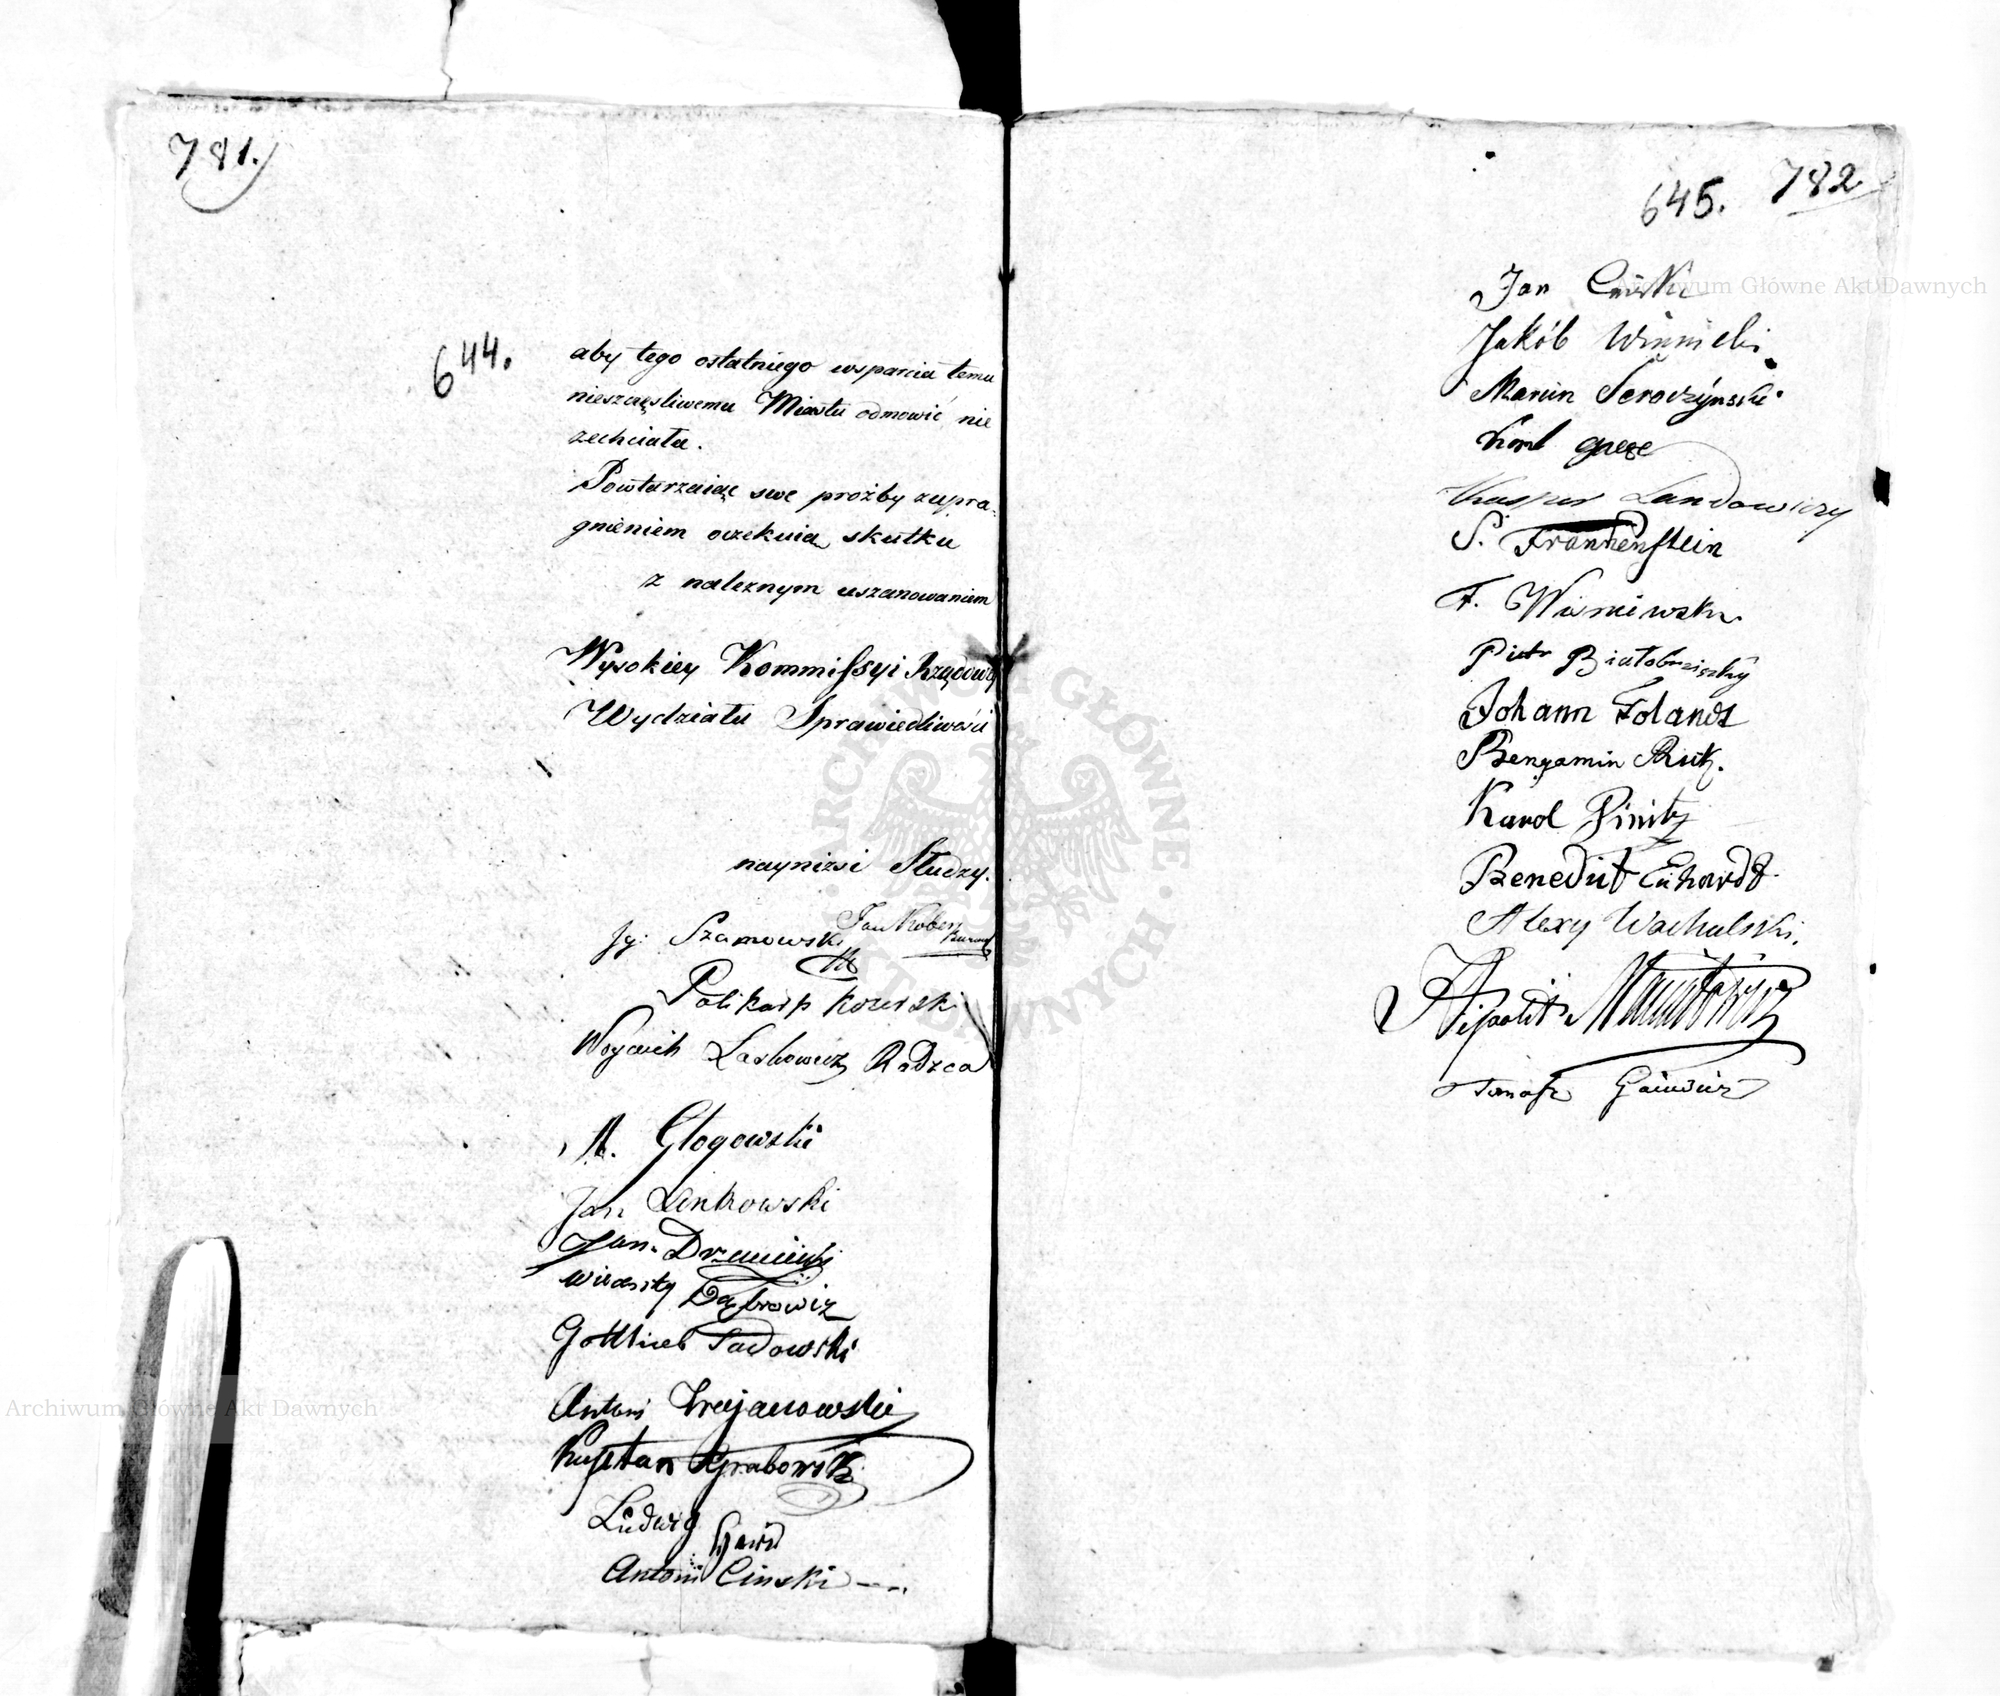 781.
644.
aby tego ostatniego wsparcia temu
nieszczęsliwemu Miastu odmowić nie
zechciała.
Powtarzaiąc swe prożby zupra-
gnieniem oczekuią skutku
z należnym uszanowaniem
Wysokiey Kommissyi Rządowey
Wydziału Sprawiedliwości
nayniżsi Słudzy.
Jg: Szamowski Jan Kober
Polikarp Kozerski
Woyciech Laskowicz Radzca
A. Głogowski
Jan Lenkowski
Jan
Wincenty Dąbrowicz
Gottlieb Sadowski
Antoni Trojanowski
Kajetan Grabowski
Ludwig
Antoni Cinski
645. 782
Jan Cinski
Jakób Winnicki
Marcin Seroczynski
Karl
Kasper Landowiczy
S. Frankenstein
F. Wisniewski
Piotr Białobrzeski
Johann Folandt
Benjamin Rutz.
Karol Pinitz
Benedict Erhardt
Alexy Wachulski.
Hipolit
Tomasz
Archiwum Główne Akt Dawnych
Archiwum Główne Akt Dawnych
ARCHIWUM GŁÓWNE AKT DAWNYCH